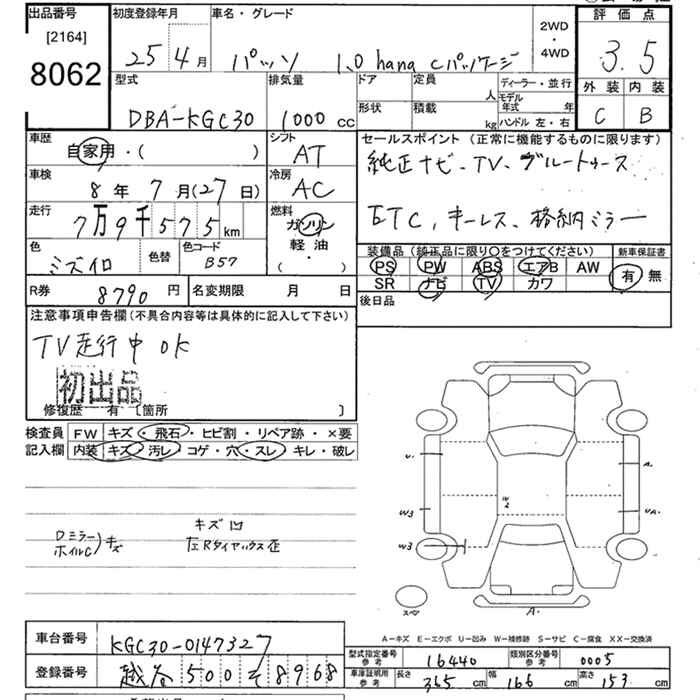 出品番号
[2164]
8062
初度登録年月
25年4月
車名・グレード
パッソ 1.0 hana Cパッケージ
2WD
・
4WD
評価点
3.5
外装 内装
C B
型式
DBA-KGC30
排気量
1000 cc
ドア 定員 人
形状 積載 kg
ディーラー・並行
モデル年式 年
ハンドル 左・右
車歴
自家用・( )
シフト
AT
車検
8年7月(27日)
冷房
AC
走行
7万9千575km
燃料
ガソリン
軽油
(・)
色
ミズイロ
色替
色コード
B57
セールスポイント(正常に機能するものに限ります)
純正ナビ、TV、ブルートゥース
ETC、キーレス、格納ミラー
装備品(純正品に限り〇をつけてください)
PS PW ABS エアB AW
SR ナビ TV カワ
新車保証書
有 無
R券 8790円
名変期限 月 日
後日品
注意事項申告欄(不具合内容等は具体的に記入して下さい)
TV走行中OK
初出品
修復歴 有 〔箇所 〕
検査員記入欄
FW キズ・飛石・ヒビ割・リペア跡・×要
内装 キズ・汚レ・コゲ・穴・スレ・キレ・破レ
Dミラー
ホイルC)キズ
キズ凹
左Rタイヤックス歪
U.
A.
W3
UA.
W3
W2
A.
スペア
A-キズ E-エクボ U-凹み W-補修跡 S-サビ C-腐食 XX-交換済
車台番号
KGC30-0147327
登録番号
越谷 500 そ 8968
型式指定番号
参考
16440
類別区分番号
参考
0005
車庫証明用
参考
長さ 365cm 幅 166cm 高さ 153cm